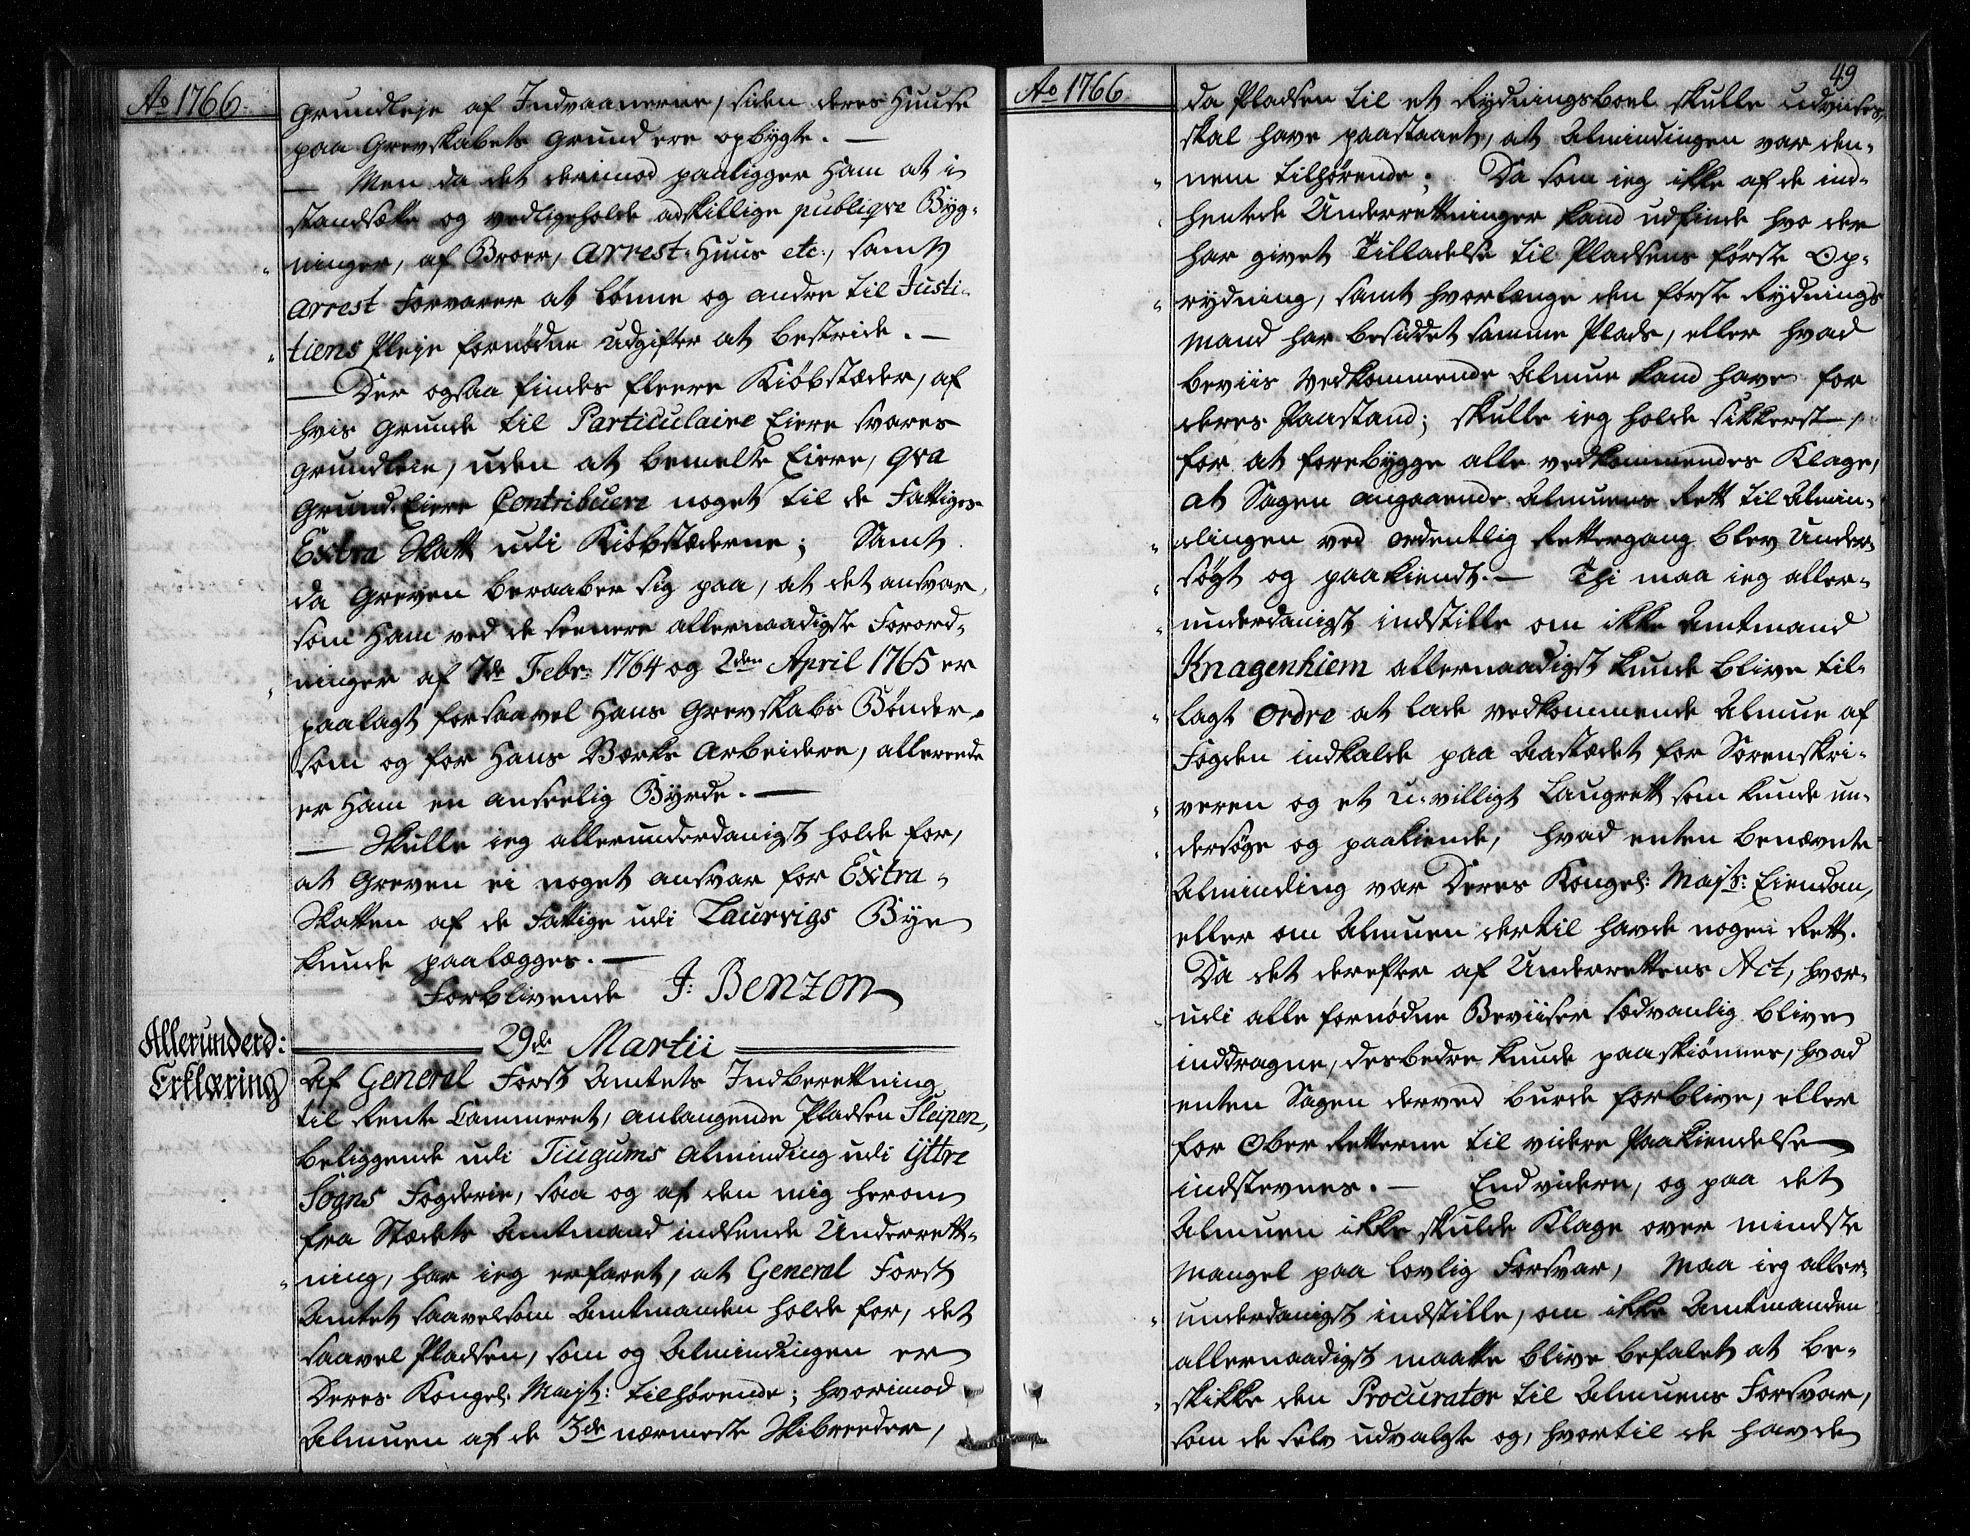 Ao 1766.
grundleje af Indvaanerne, siden deres Huuse
paa Grevskabets Grund ere opbygte. —
— Men da det derimod paaligger Ham at i
standsætte og vedligeholde adskillige publiqve Byg-
ninger, af Broer, Arrest-Huus etc:, samt
Arrest Forvarer at lønne og andre til Justi-
tiens Pleje fornødne Udgifter at bestride. —
— Der ogsaa findes fleere Kiøbstæder, af
hvis Grunde til Particulaire Eiere svares
Grundleie, uden at bemelte Eiere, qva
Grund-Eiere Contribuere noget til de Fattiges
Extra Skatt udi Kiøbstæderne; Samt
da Greven beraaber sig paa, at det ansvar,
som Ham ved de seenere allernaadigste Forord-
ninger af 7de Febr: 1764 og 2den April 1765 er
paalagt for saavel Hans Grevskabs Bønder,
som og for Hans Værks Arbeidere, allereede
er Ham en anseelig Byrde. —
— Skulle ieg allerunderdanigst holde for,
at Greven ei noget ansvar for Extra-
Skatten af de Fattige udi Laurvigs Bye
kunde paalægges. —
Forblivende J: Benzon
29de Martii
Allerunderd:
Erklæring
Af General Forst Amtets Indberettning
til Rente Cammeret, anlangende Pladsen Sleipen,
beliggende udi Tiugums Alminding udi Yttre
Sogns Fogderie, saa og af den mig herom
fra Stædets Amtmand indsende Underrett-
ning, har ieg erfaret, at General Forst
Amtet saavelsom Amtmanden holde for, det
saavel Pladsen, som og Almindingen er
Deres Kongel: Mayt: tilhørende; hvorimod
Almuen af de 3de nærmeste Skibreeder,
Ao 1766.
49
da Pladsen til et Rydningsboel skulle udviises,
skal have paastaaet, at Almindingen var den-
nem tilhørende; Da som ieg ikke af de ind-
hentede Underrettninger kand udfinde hvo der
har givet Tilladelse til Pladsens første Op-
rydning, samt hvorlænge den første Rydnings
Mand har besiddet samme Plads, eller hvad
beviis vedkommende Almue kand have for
deres Paastand; skulle ieg holde sikkerst,
for at forebygge alle vedkommendes Klage,
at Sagen angaaende Almuens Rett til Almin-
dingen ved ordentlig Rettergang blev under-
søgt og paakiendt. — Thi maa ieg aller-
underdanigst indstille om ikke Amtmand
Knagenhiem allernaadigst kunde blive til-
lagt Ordre at lade vedkommende Almue af
Fogden indkalde paa Aastædet for Sorenskri-
veren og et u-villigt Laugrett som kunde un-
dersøge og paakiende, hvad enten benævnte
Alminding var Deres Kongel: Mayts: Eiendom,
eller om Almuen dertil havde nogen Rett.
Da det derefter af Underrettens Act, hvor-
udi alle fornødne Beviiser sædvanlig blive
inddragne, desbedre kunde paaskiønnes, hvad
enten Sagen derved burde forblive, eller
for Ober Retterne til videre Paakiendelse
indstevnes. — Endvidere, og paa det
Almuen ikke skulde Klage over mindste
Mangel paa lovlig Forsvar, Maa ieg aller-
underdanigst indstille, om ikke Amtmanden
allernaadigst maatte blive befalet at be-
skikke den Procurator til Almuens Forsvar,
som de selv udvalgte og, hvortil de havde